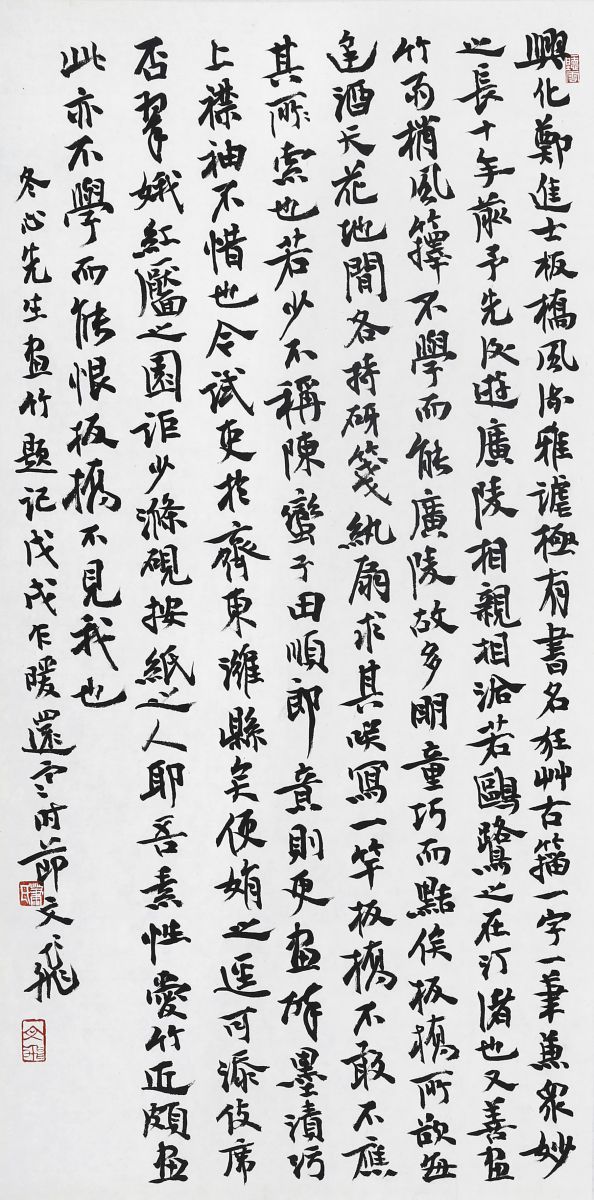 興化鄭進士板橋風流雅謔極有書名狂艸古籀一字一筆兼眾妙
之長十年前予先後遊廣陵相親相洽若鷗鷺之在汀渚也又善畫
竹雨梢風籜不學而能廣陵故多明童巧而黠俟板橋所欲每
逢酒天花地間各持砑箋紈扇求其笑寫一竿板橋不敢不應
其所索也若少不稱陳蠻子田順郎意則更畫醉墨漬污
上襟袖不惜也今試吏於齊東濰縣矣便娟之逕可添伎席
否翠娥紅靨之園詎少滌硯按紙之人耶吾素性愛竹近頗畫
此亦不學而能恨板橋不見我也
冬心先生畫竹題記戊戌乍暖還寒時節文飛